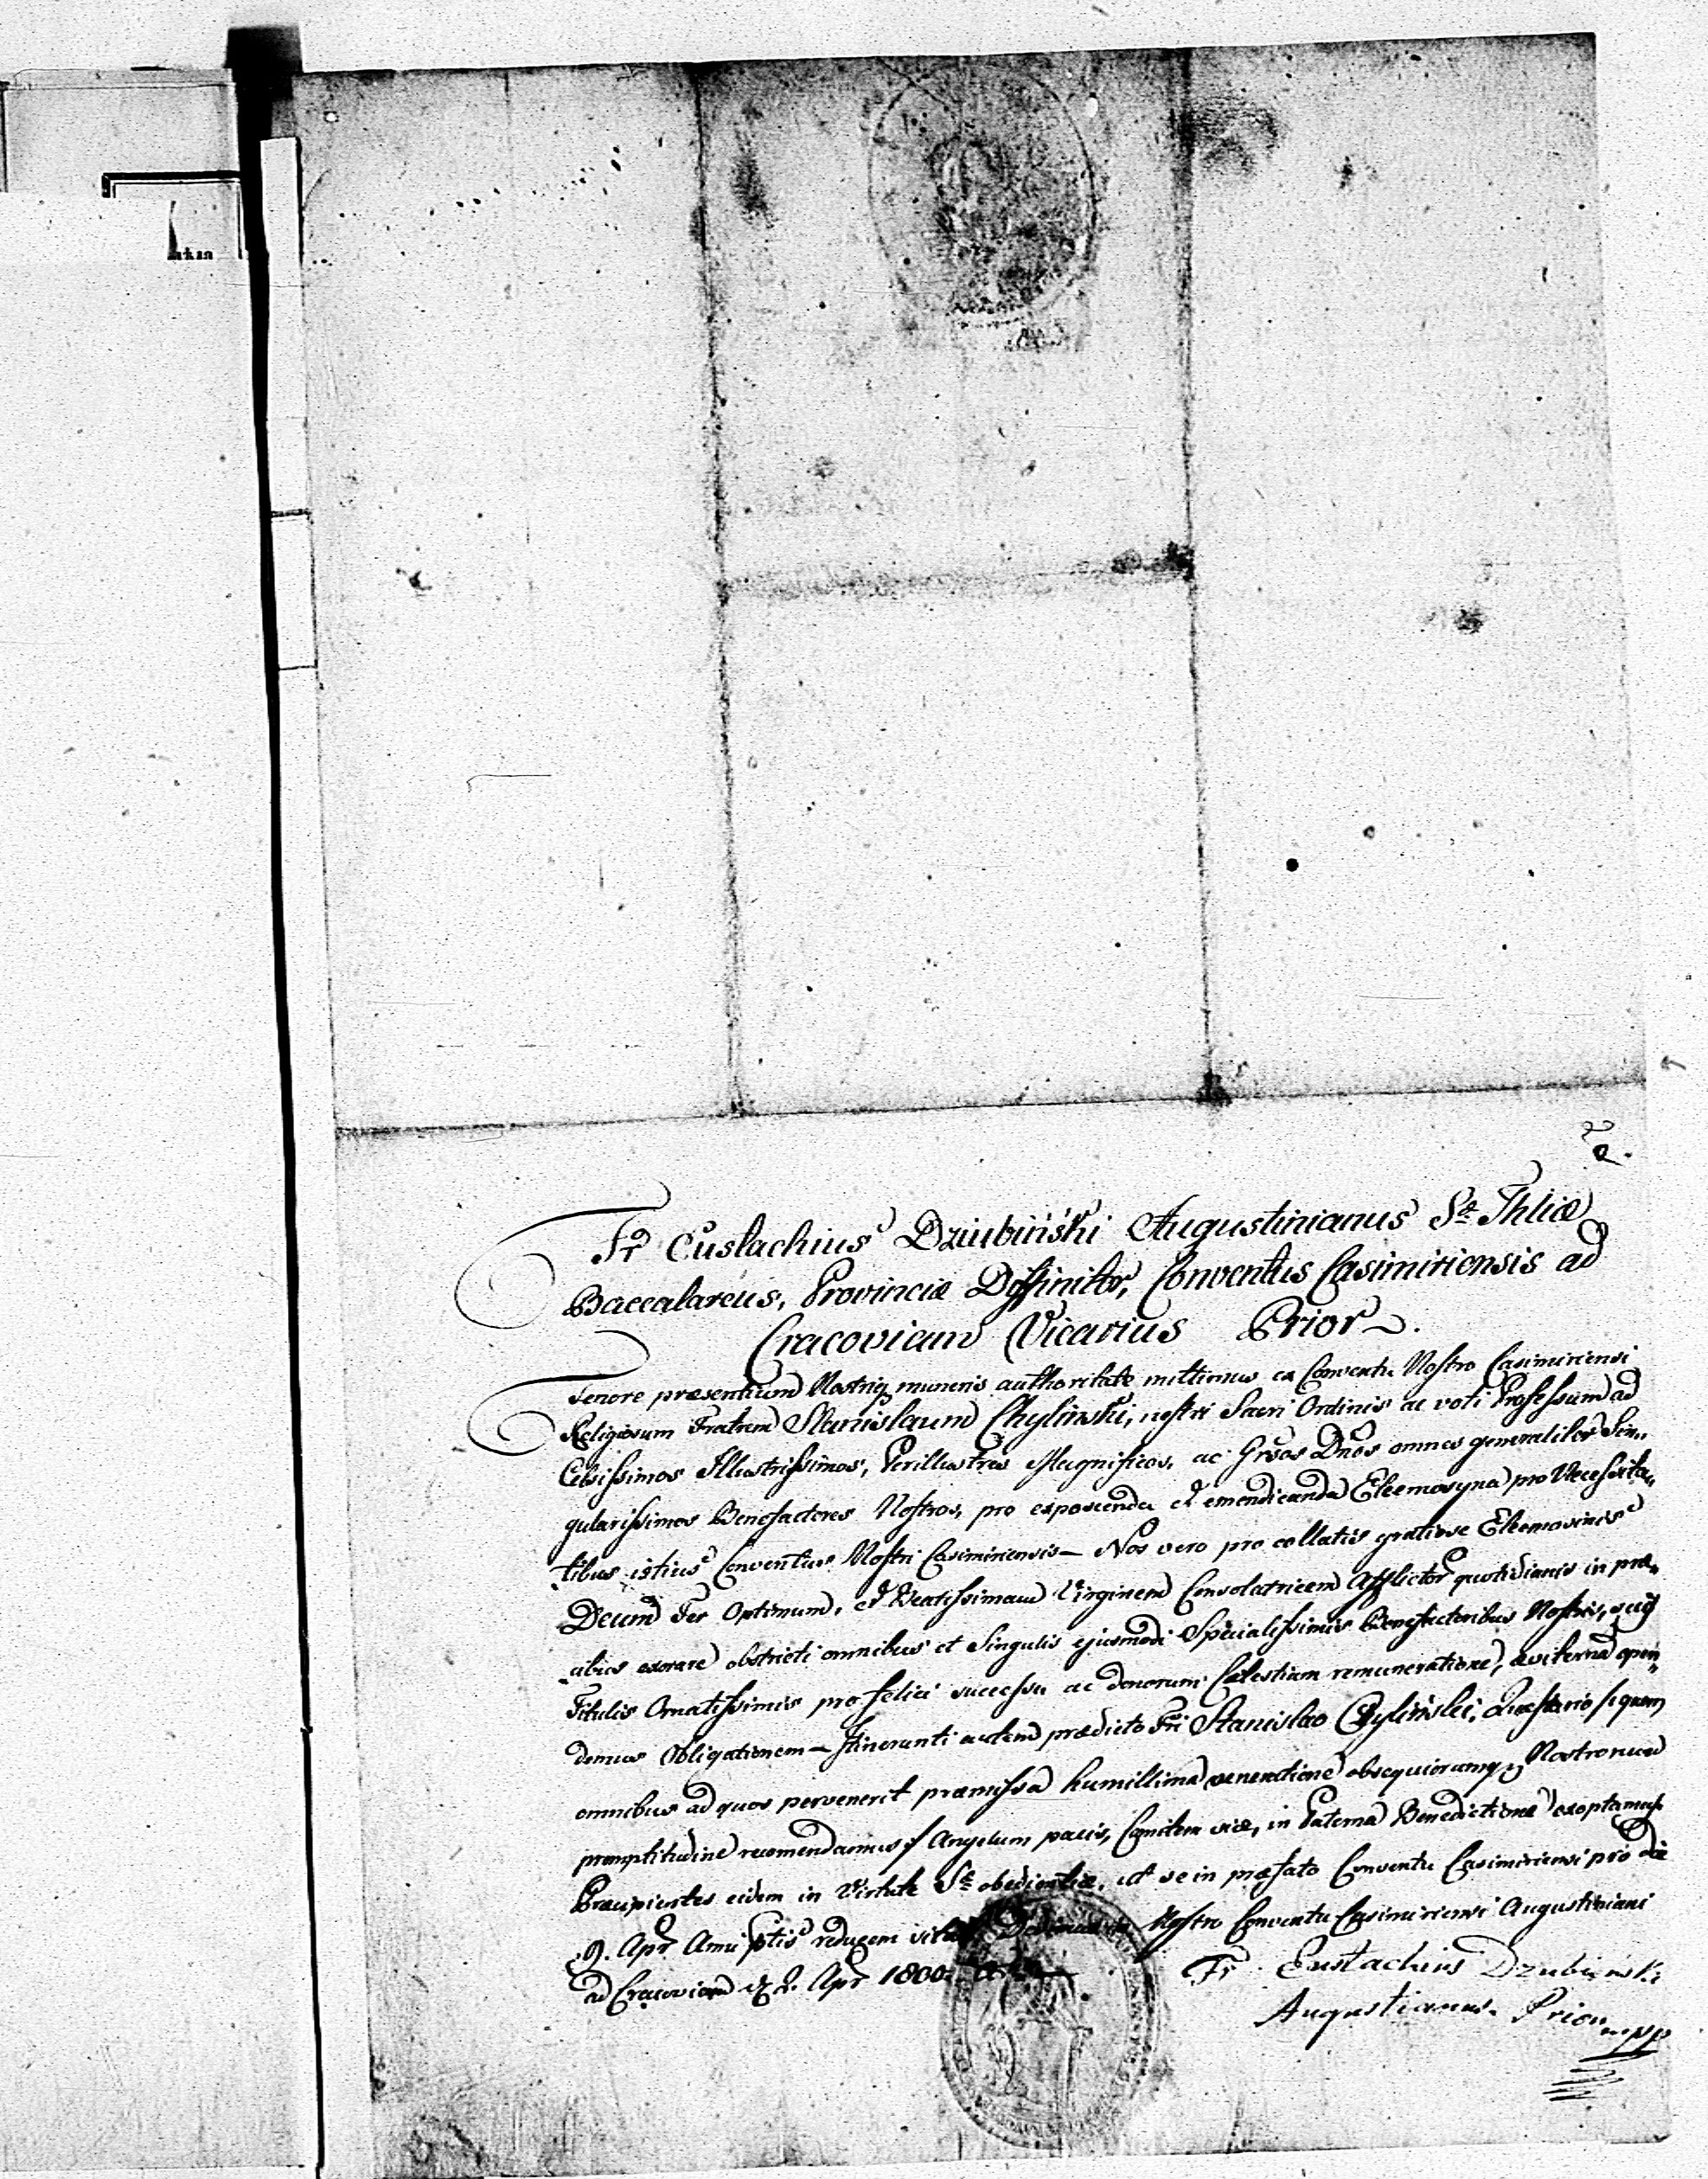 2.
Fr Eustachius Dziubiński Augustinianus Sæ Thliæ
Baccalareus, Provinciæ Deffinitor, Conventus Casimiriensis ad
Cracoviam Vicarius Prior.
Tenore præsentium Nostriq muneris authoritate mittimus ex Conventu Nostro Casimiriensi
Religiosum Fratrem Stanislaum Chylinski, nostri Sacri Ordinis ac voti Professum ad
Celsissimos Illustrissimos, Perillustres Magnificos, ac Grsos Dnos omnes generaliter Sin„
gularissimos Benefactores Nostros, pro exposcenda et emendicanda Eleemosyna pro Necessita„
tibus istius Conventus Nostri Casimiriensis — Nos vero pro collatis gratiose Eleemosinis
Deum Ter Optimum, et Beatissimam Virginem Consolatricem Afflictor quotidianis in præ„
cibus exorare obstricti omnibus et Singulis ejusmodi Specialissimis Benefactoribus Nostris, suis
Titulis Ornatissimis pro felici successu ac donorum Cælestium remuneratione, æviterna spon„
demus Obligationem — Itineranti autem prædicto Fri Stanislao Chylinski, Quæstario
omnibus ad quos pervenerit præmissa humillima veneratione obsequiorumq Nostrorum
promptitudine recomendamus Angelum pacis, Comitem viæ, in Paterna Benedictione exoptamus
Præcipientes eidem in Virtute Stæ obedientiæ, ut se in præfato Conventu Casimiriensi pro die
9. Apr Anni reducem Nostro Conventu Casimiriensi Augustiniani
ad Cracoviam 2. Apr 1800.
Fr Eustachius Dzubinski
Augustianus Prior mpp